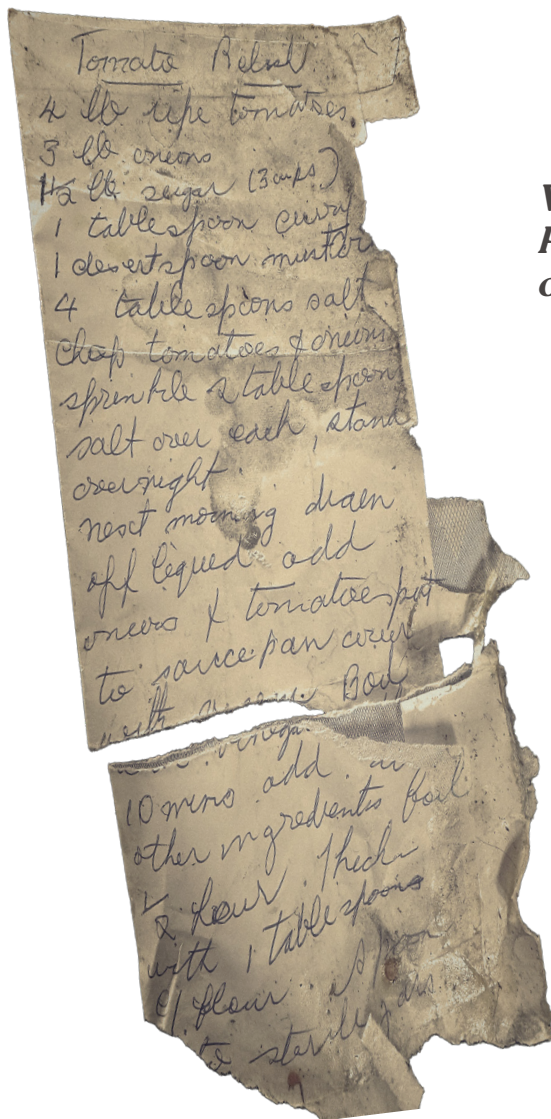 Tomato Relish
4 lb ripe tomatoes
3 lb onions
1½ lb sugar (3 cups)
1 tablespoon curry
1 desertspoon mustar
4 tablespoons salt
chop tomatoes & onions
sprinkle 2 tablespoon
salt over each, stand
overnight.
next morning drain
off liqued add
onions & tomatoes put
to saucepan cover
with vinegar Boil
10 mins add
other ingredients boil
½ hour. Thick
with 1 tablespoons
of flour. spoon
to sterile jars.